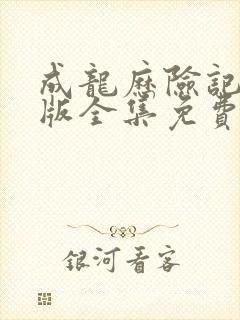 成龍歷險記
版全集免費
銀河看客